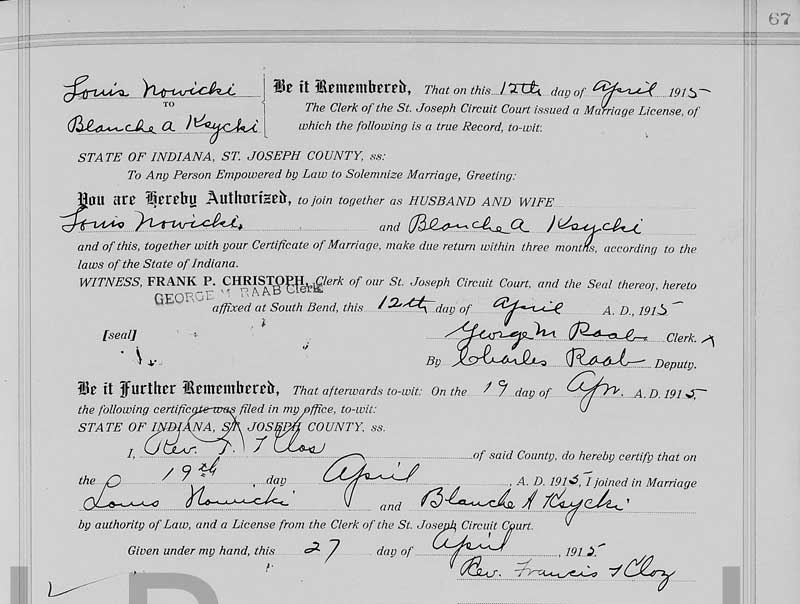 67
Louis Nowicki
TO
Blanche A Ksycki
Be it Remembered, That on this 12th day of April 1915
The Clerk of the St. Joseph Circuit Court issued a Marriage License, of
which the following is a true Record, to-wit:
STATE OF INDIANA, ST. JOSEPH COUNTY, ss:
To Any Person Empowered by Law to Solemnize Marriage, Greeting:
You are Hereby Authorized, to join together as HUSBAND AND WIFE
Louis Nowicki, and Blanche A Ksycki
and of this, together with your Certificate of Marriage, make due return within three months, according to the
laws of the State of Indiana.
WITNESS, FRANK P. CHRISTOPH, Clerk of our St. Joseph Circuit Court, and the Seal thereof, hereto
GEORGE M RAAB Clerk
affixed at South Bend, this 12th day of April A. D., 1915
[seal] George M Raab Clerk.
By Charles Raab Deputy.
Be it Further Remembered, That afterwards to-wit: On the 19 day of Apr. A. D. 1915,
the following certificate was filed in my office, to-wit:
STATE OF INDIANA, ST. JOSEPH COUNTY, ss.
I, Rev. F. T Clos of said County, do hereby certify that on
the 19th day April, A. D. 1915, I joined in Marriage
Louis Nowicki and Blanche A Ksycki
by authority of Law, and a License from the Clerk of the St. Joseph Circuit Court.
Given under my hand, this 27 day of April, 1915
Rev. Francis T Cloz